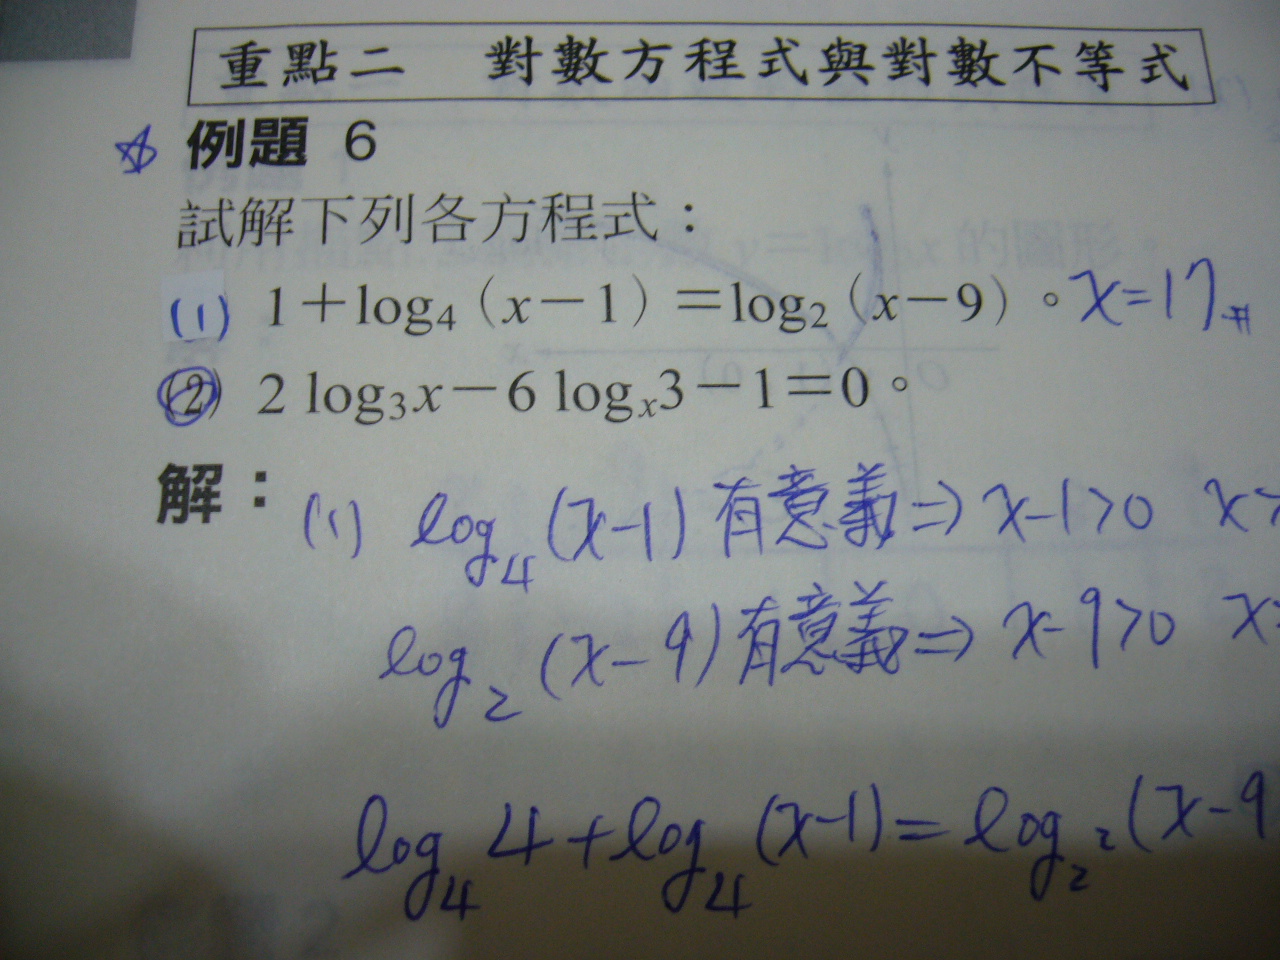 重點二 對數方程式與對數不等式
例題 6
試解下列各方程式：
(1) 1＋log₄（x－1）＝log₂（x－9）。x=17
(2) 2 log₃x－6 logₓ3－1＝0。
解：
(1) log₄(x-1) 有意義⇒ x-1>0 x>
log₂(x-9) 有意義⇒ x-9>0 x>
log₄4+log₄(x-1)=log₂²(x-9)